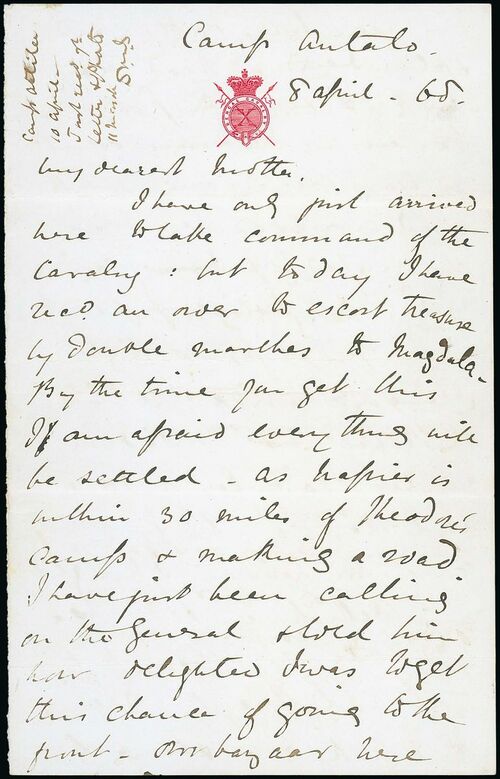 Camp Antalo.
8 April - 68.
Camp Attala
10 April
Just recd yr
letter & Photo
11 March
X
My dearest Mother,
I have only just arrived
here to take command of the
Cavalry: but to day I have
recd. an order to escort treasure
by double marches to Magdala -
By the time you get this
I am afraid every thing will
be settled - as Napier is
within 30 miles of Theodore's
Camp & making a road
I have just been calling
on the General & told him
how delighted I was to get
this chance of going to the
front - Our bazaar here